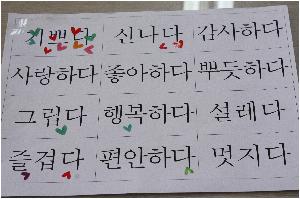 기쁘다 신나다 감사하다
사랑하다 좋아하다 뿌듯하다
그립다 행복하다 설레다
즐겁다 편안하다 멋지다